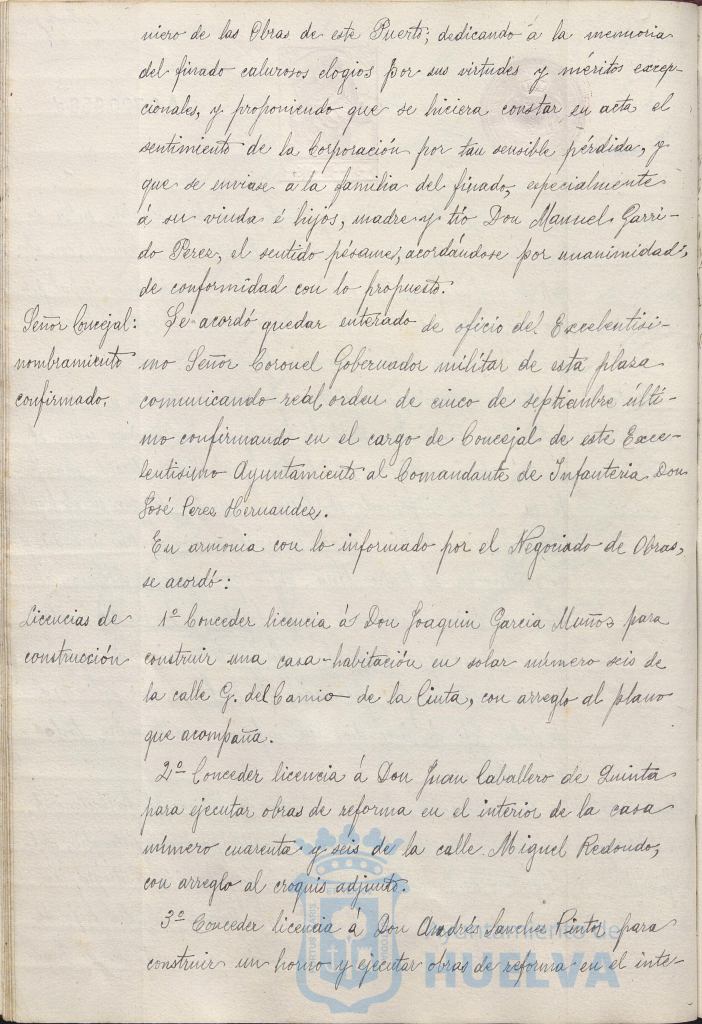 niero de las Obras de este Puerto; dedicando á la memoria
del finado calurosos elogios por sus virtudes y méritos excep-
cionales, y proponiendo que se hiciera constar en acta el
sentimiento de la Corporación por tan sensible pérdida, y
que se enviase á la familia del finado, especialmente
á su viuda é hijos, madre y tío Don Manuel Garri-
do Perez, el sentido pésame; acordándose por unanimidad,
de conformidad con lo propuesto.
Señor Concejal:
nombramiento
confirmado.
Se acordó quedar enterado de oficio del Excelentisi-
mo Señor Coronel Gobernador militar de esta plaza
comunicando real orden de cinco de septiembre últi-
mo confirmando en el cargo de Concejal de este Exce-
lentisimo Ayuntamiento al Comandante de Infanteria Don
José Perez Hernandez.
En armonia con lo informado por el Negociado de Obras,
se acordó:
Licencias de
construcción
1º Conceder licencia á Don Joaquin Garcia Muñoz para
construir una casa-habitación en solar número seis de
la calle G. del Camio de la Cinta, con arreglo al plano
que acompaña.
2º Conceder licencia á Don Juan Caballero de Quinta
para ejecutar obras de reforma en el interior de la casa
número cuarenta y seis de la calle Miguel Redondo,
con arreglo al croquis adjunto.
3º Conceder licencia á Don Andrés Sanchez Pintor para
construir un horno y ejecutar obras de reforma en el inte-
Ayuntamiento de
HUELVA